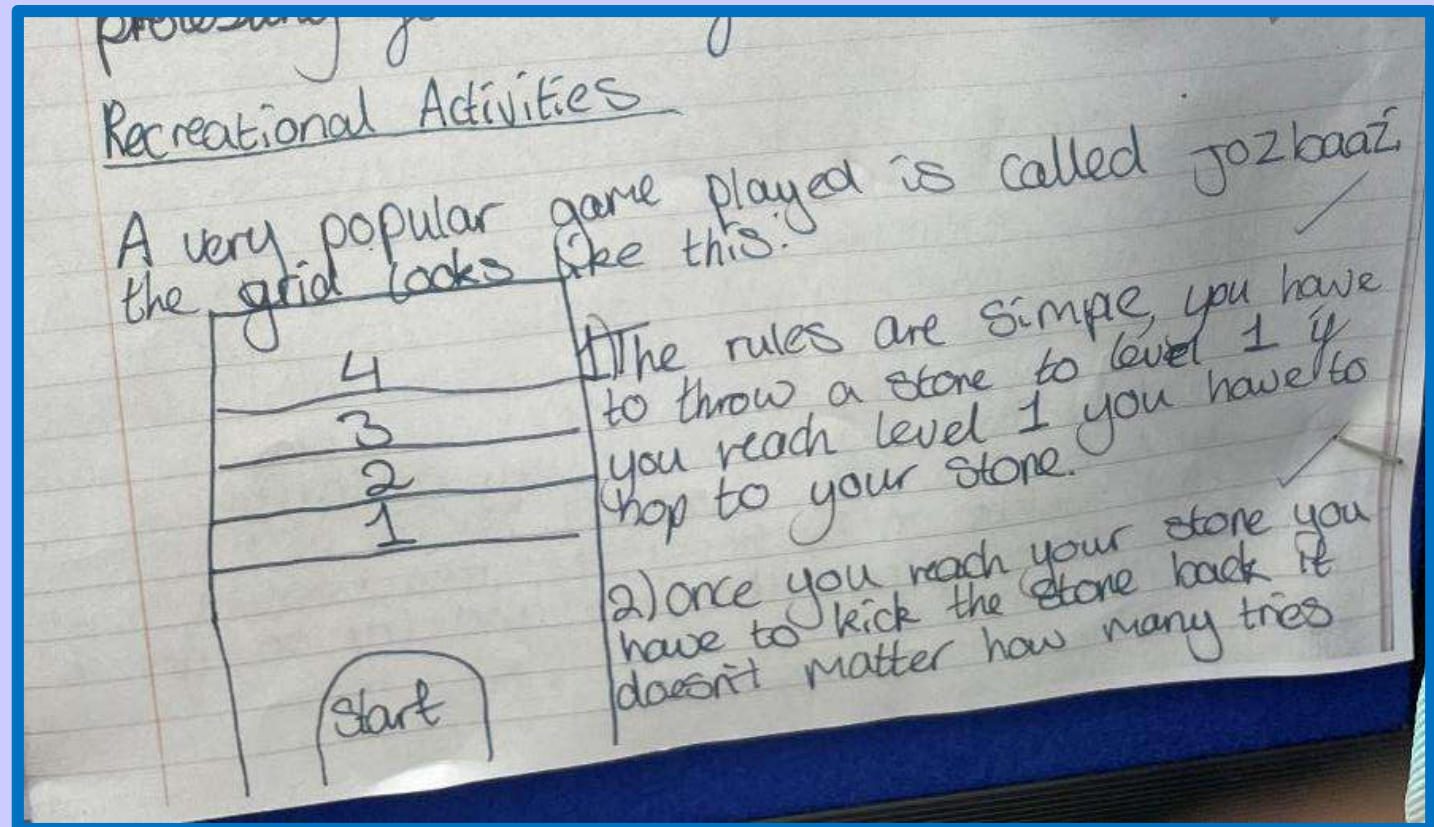 Recreational Activities
A very popular game played is called Jozbaazi.
the grid looks like this:
4
3
2
1
Start
1) The rules are simple, you have
to throw a stone to level 1 if
you reach level 1 you have to
hop to your stone.
2) once you reach your stone you
have to kick the stone back it
doesn't matter how many tries